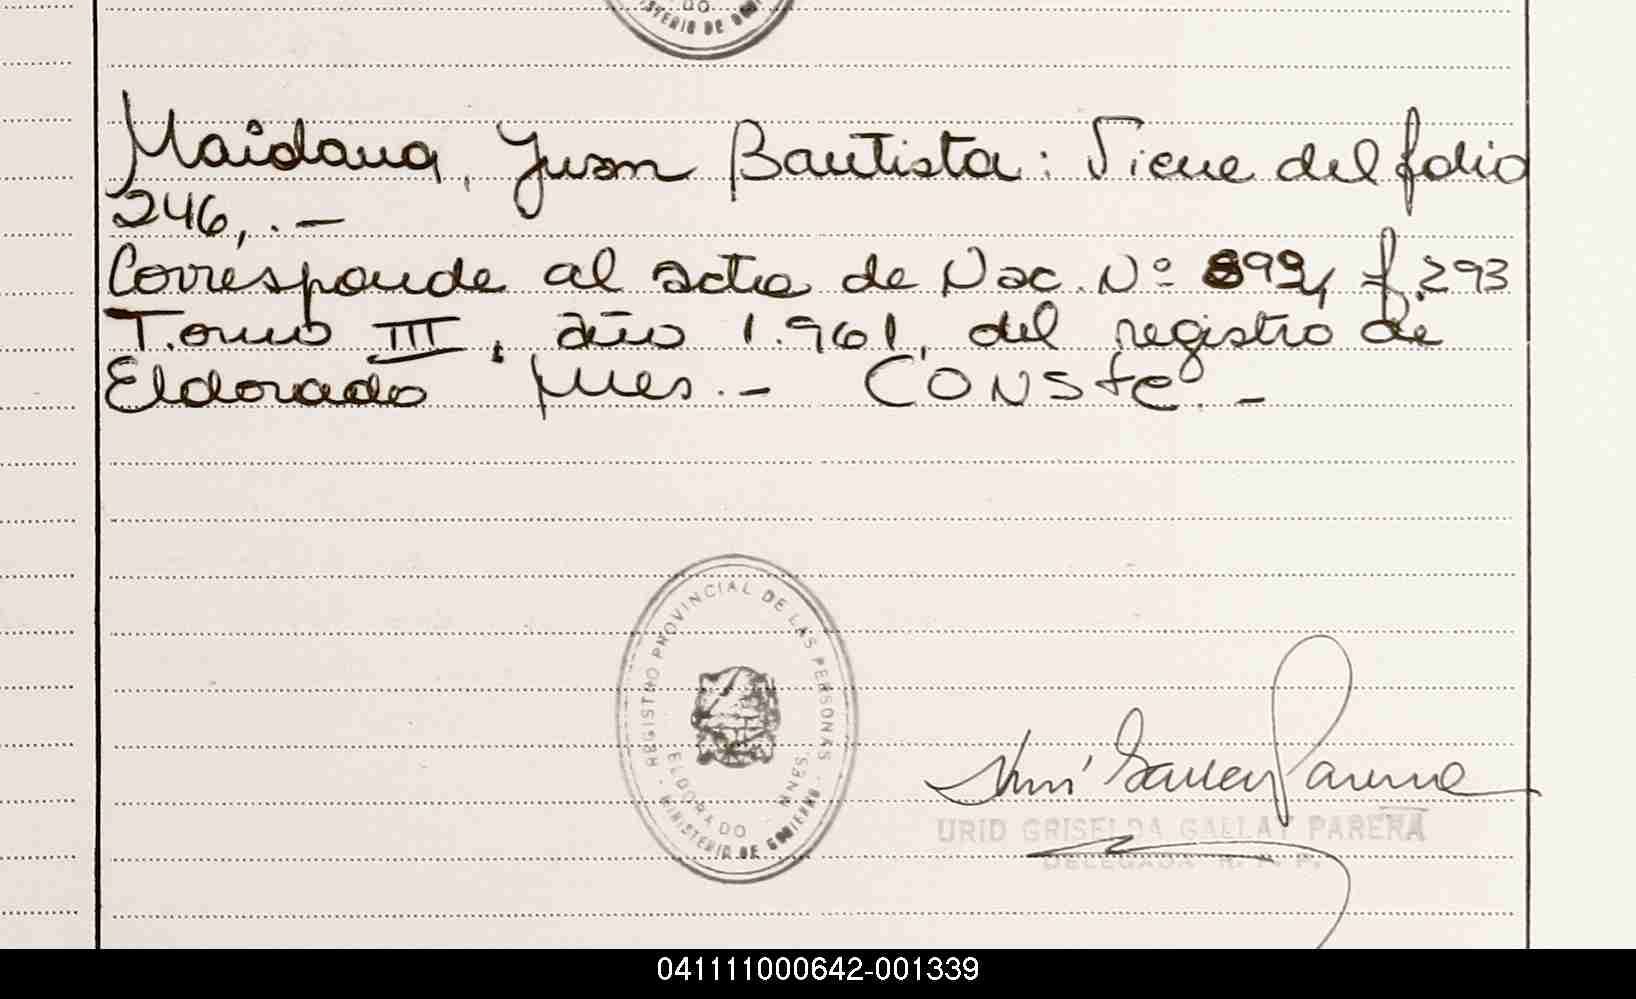 DO
MINISTERIO DE GOBIERNO
Maidana, Juan Bautista: Viene del folio
246,.-
Corresponde al acta de Nac. Nº 899, f. 293
Tomo III, año 1.961, del registro de
Eldorado Mnes.- CONSTE.-
REGISTRO PROVINCIAL DE LAS PERSONAS
ELDORADO MNES.
MINISTERIO DE GOBIERNO
URID GRISELDA GALLAY PARERA
DELEGADA R. P. P.
041111000642-001339